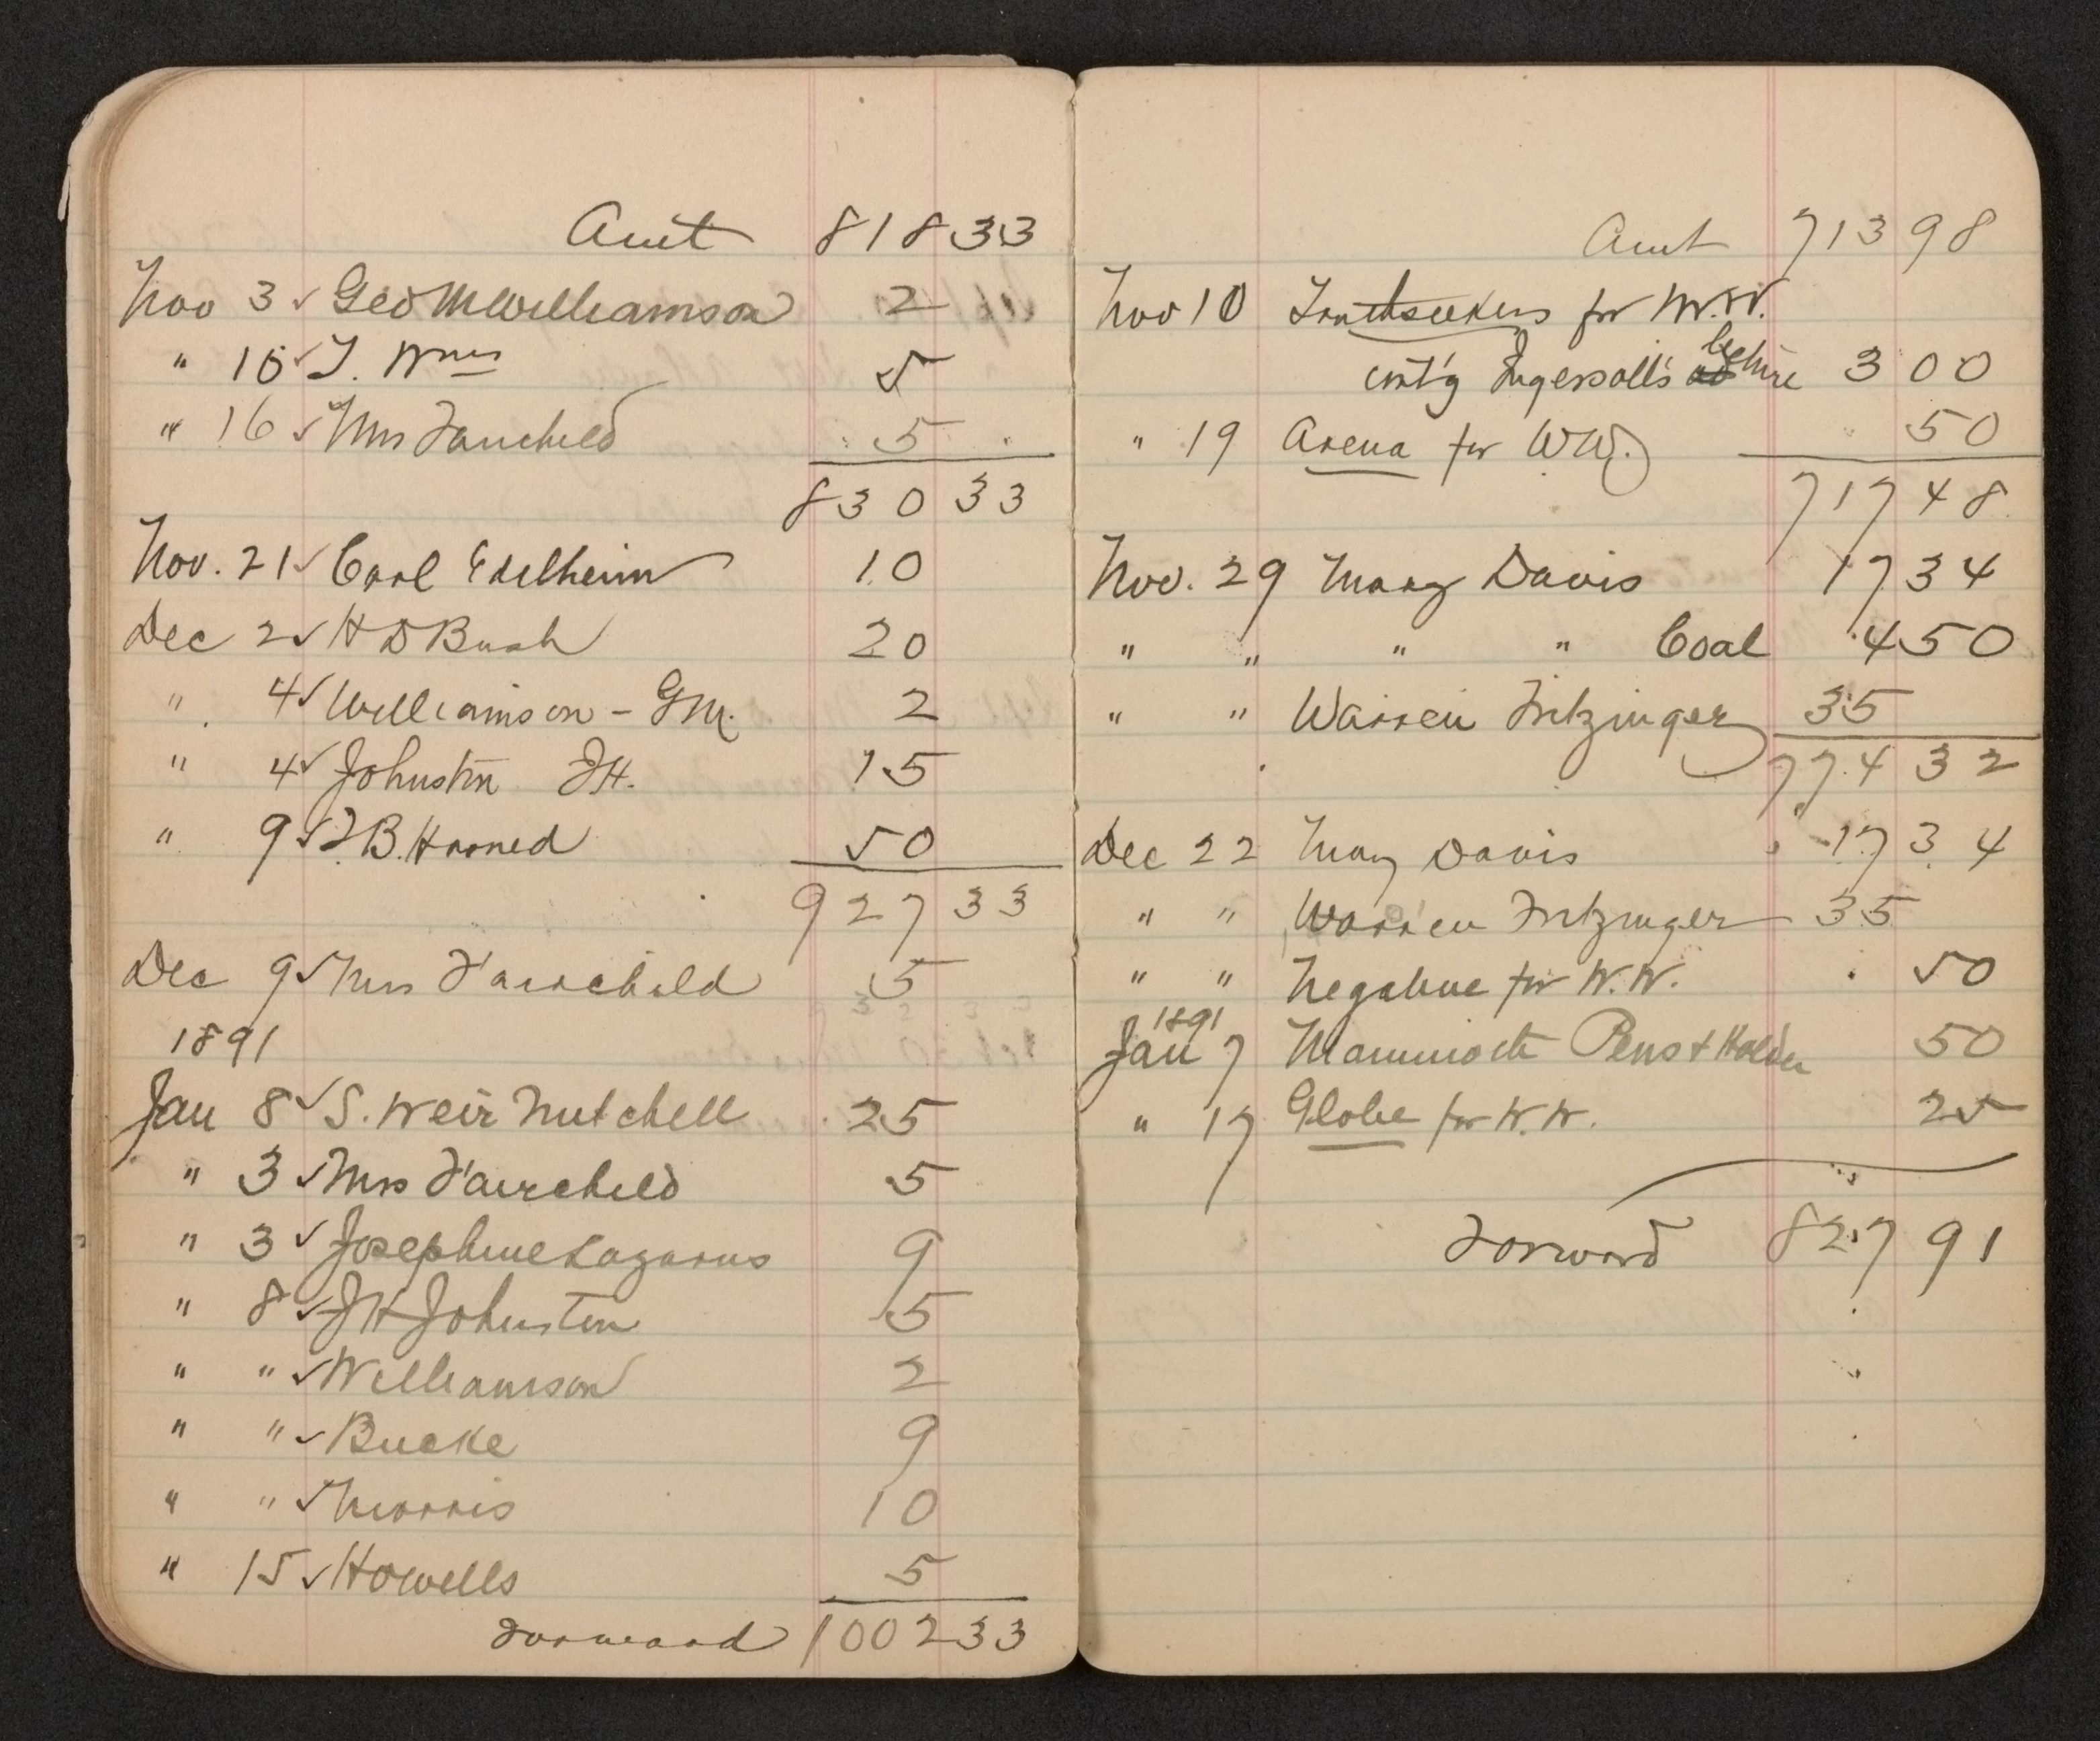 Amt 818 33
Nov 3 ✓ Geo M Williamson 2
" 10 ✓ T. Wms 5
" 16 ✓ Mrs Fairchild 5
830 33
Nov. 21 ✓ Carl Edelheim 10
Dec 2 ✓ H D Bush 20
" 4 ✓ Williamson - GM. 2
" 4 ✓ Johnston JH. 15
" 9 ✓ T.B. Harned 50
927 33
Dec 9 ✓ Mrs Fairchild 5
1891
Jan 8 ✓ S. Weir Mitchell 25
" 3 ✓ Mrs Fairchild 5
" 3 ✓ Josephine Lazarus 9
" 8 ✓ JH Johnston 5
" " ✓ Williamson 2
" " ✓ Bucke 9
" " ✓ Morris 10
" 15 ✓ Howells 5
Forward 1002 33
Amt 713 98
Nov 10 Truthseekers for W.W.
cont'g Ingersoll's lecture 3 00
" 19 Arena for WW. 50
717 48
Nov. 29 Mary Davis 17 34
" " " " Coal 4 50
" " Warren Fritzinger 35
774 32
Dec 22 Mary Davis 17 34
" " Warren Fritzinger 35
" " Negative for W.W. 50
1891
Jan 7 Mammoth Pens + Holder 50
" 17 Globe for W.W. 25
Forward 827 91